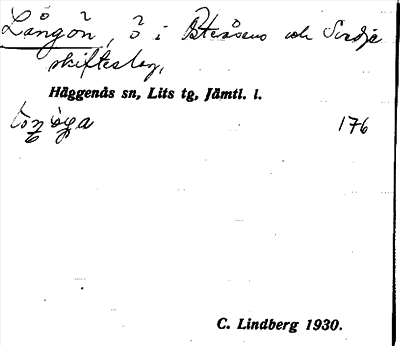 Långön, ö i Österåsens och
skifteslag,
Häggenås sn, Lits tg, Jämtl. l.
176
C. Lindberg 1930.